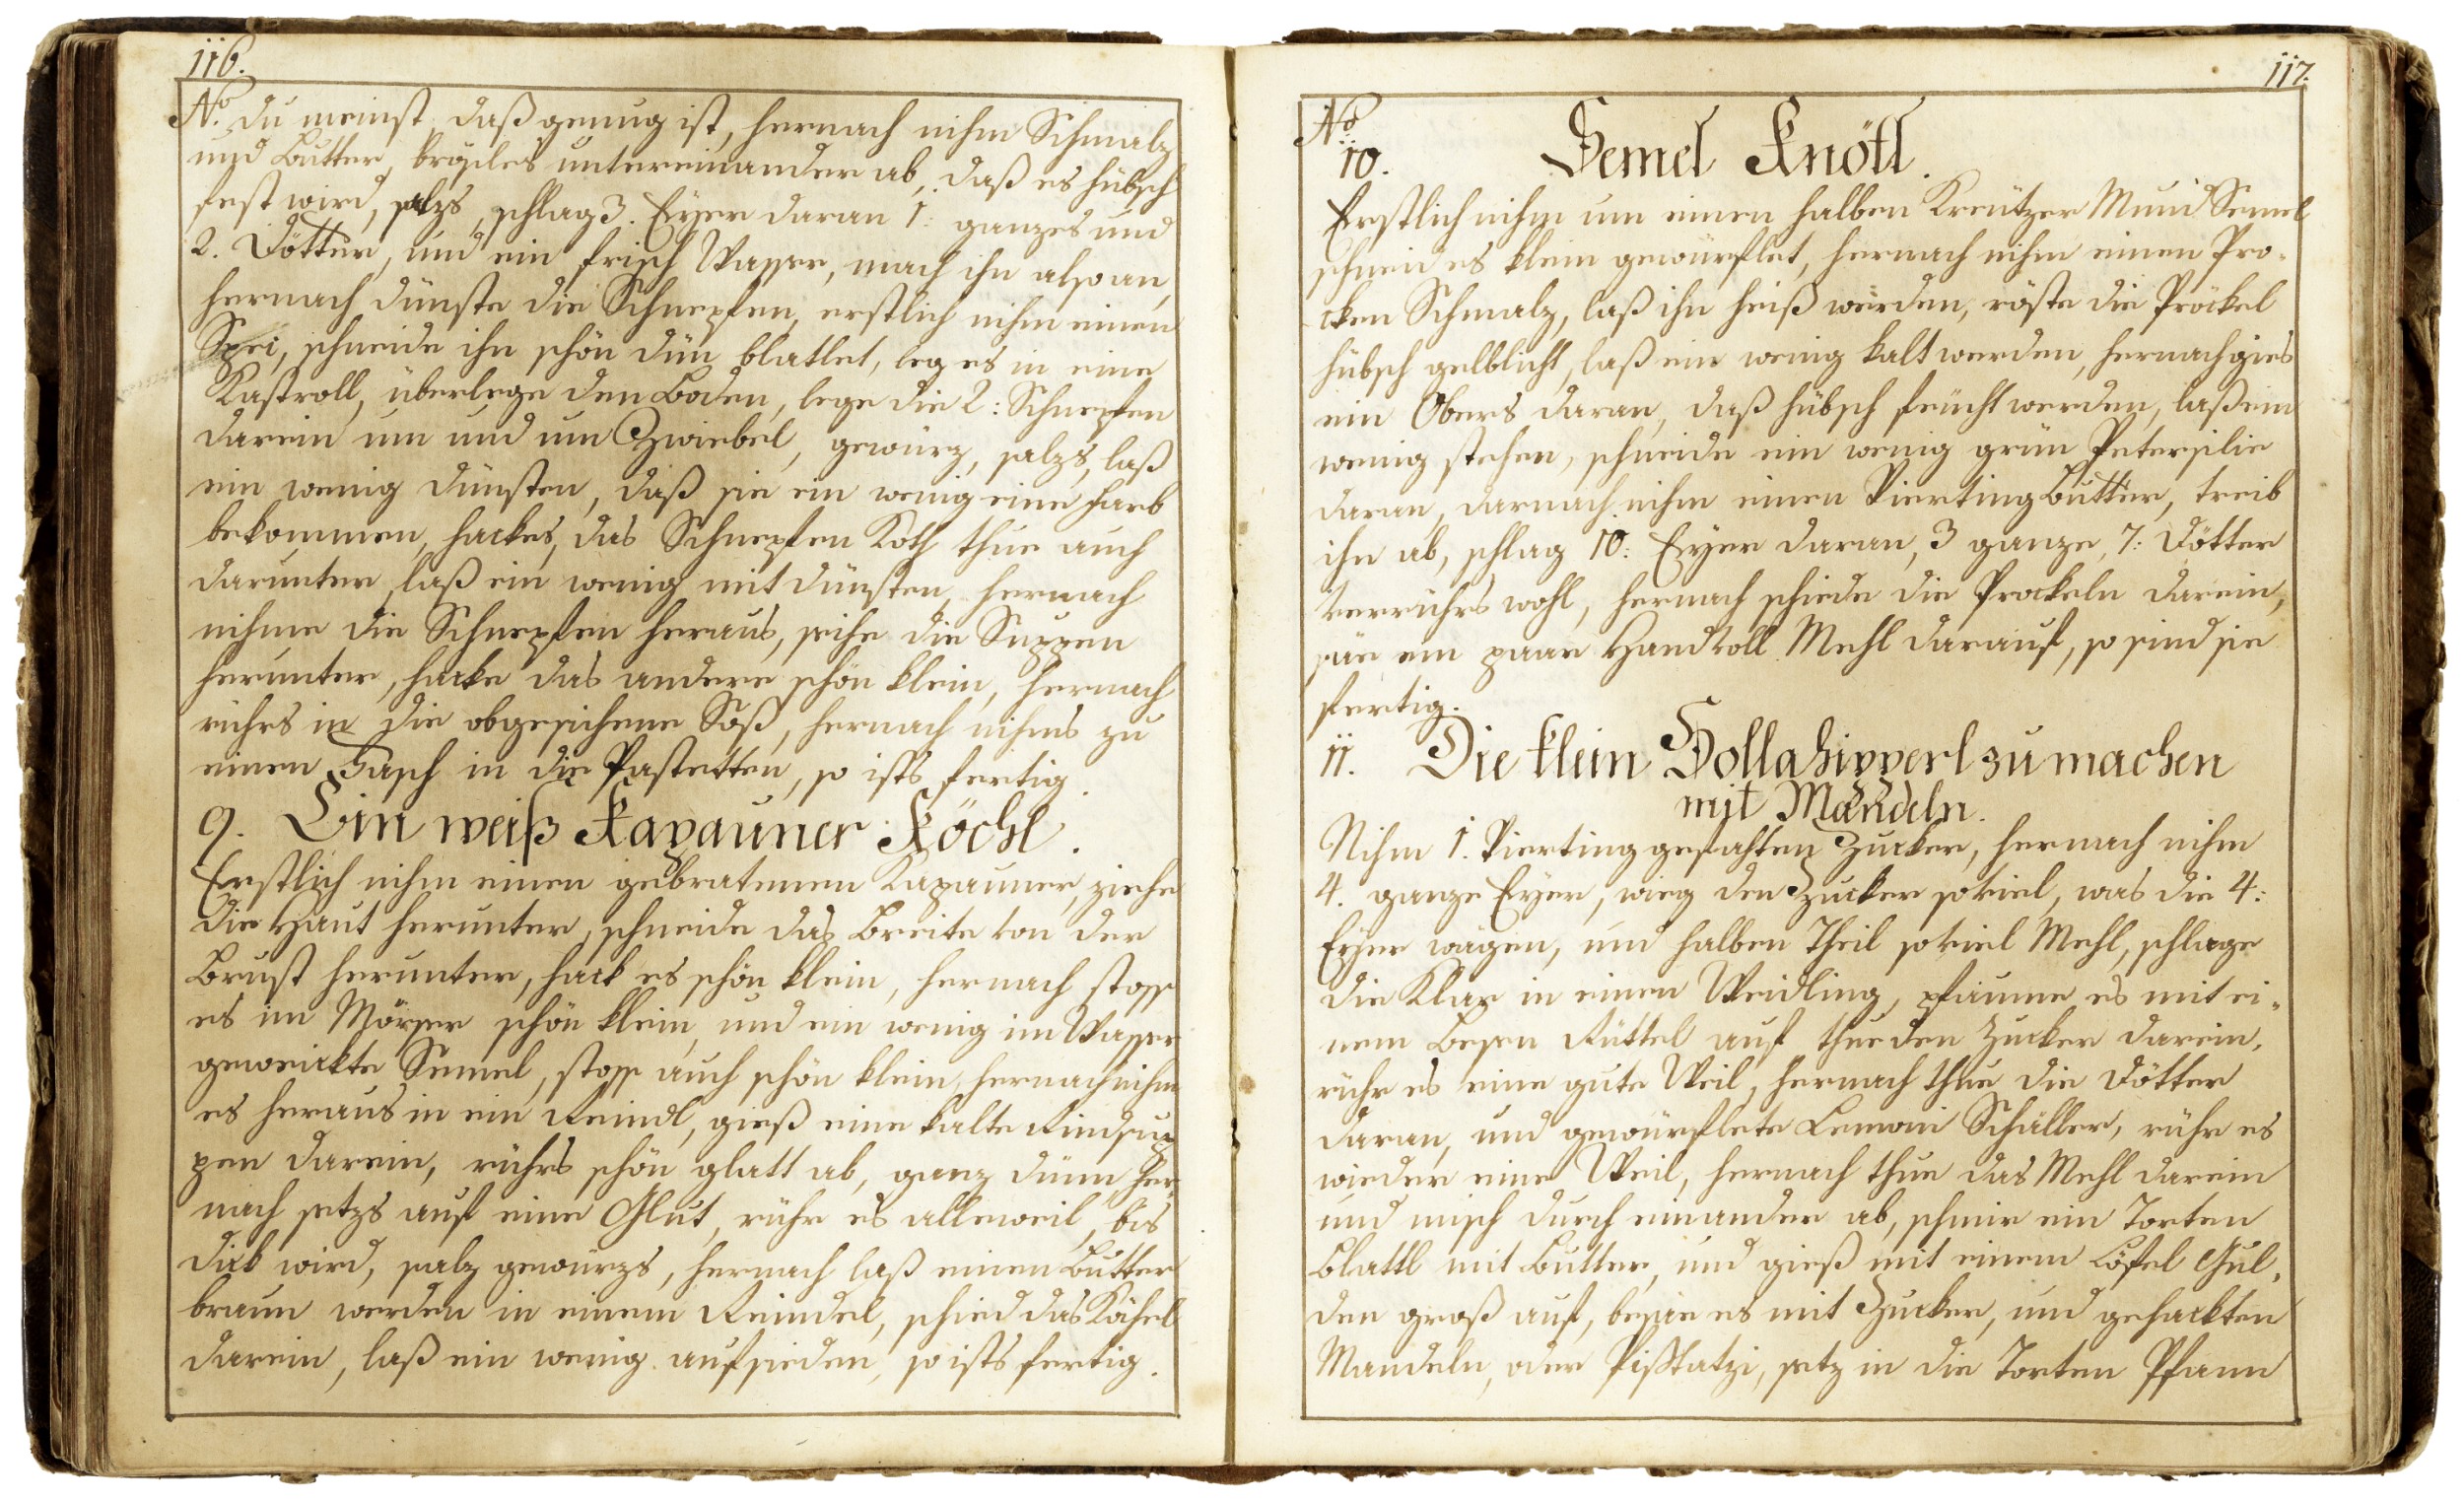 116.
No. du meinst daß genug ist, hernach nihm Schmalz
und Butter, bröseles untereinander ab, daß es hübsch
fest wird, salzs, schlag 3. Eyer daran 1: ganzes und
2. Dötter, und ein frisch Wasser, mach ihn also an,
hernach dünste die Schnepfen, erstlich nihm einen
Spei, schneide ihn schön dün blatlet, leg es in eine
Kastroll, überlege den Boden, lege die 2: Schnepfen
darein um und um Zwiebel, gewürz, salzs, laß
ein wenig dünsten, daß sie ein wenig eine Farb
bekommen, hackes, das Schnepfen Koth thue auch
darunter, laß ein wenig mit dünsten, hernach
nihme die Schnepfen heraus, seihe die Suppen
herunter, hacke das andere schön klein, hernach
rührs in die obgesichene Soß, hernach nihms zu
einen Fasch in die Pastetten, so ists fertig.
9. Ein weiß Kapauner Köchl.
Erstlich nihm einen gebratenen Kapauner, ziehe
die Haut herunter, schneide das Breite von der
Brust herunter, hack es schön klein, hernach stoss
es im Mörser schön klein, und ein wenig im Wasser
geweickte Semel, stoss auch schön klein, hernach nihm
es heraus in ein Reindl, gieß eine kalte Rindsup
pen darein, rührs schön glatt ab, ganz dünn, her-
nach setzs auf eine Glut, rühr es alleweil, bis
dick wird, salz gewürzs, hernach laß einen Butter
braun werden in einem Reindel, schied das Köchel
darein, laß ein wenig aufsieden, so ists fertig.
117.
No.
10. Semel Knötl.
Erstlich nihm um einen halben Kreutzer Mund Semel
schneid es klein gewürflet, hernach nihm einen Pro-
cken Schmalz, laß ihn heiß werden, röste die Pröckel
hübsch gelblicht, laß ein wenig kalt werden, hernach gies
ein Obers daran, daß hübsch feücht werden, laß ein
wenig stehen, schneide ein wenig grün Petersilie
daran, darnach nihm einen Vierting Butter, treib
ihn ab, schlag 10: Eyer daran, 3 ganze, 7: Dötter
verrührs wohl, hernach schiede die Prockeln darein,
säe ein paar Handvoll Mehl darauf, so sind sie
fertig.
11. Die klein Hollahipperl zu machen
mit Mandeln.
Nihm 1. Vierting gefahten Zucker, hernach nihm
4. ganze Eyer, wieg den Zucker so viel, was die 4:
Eyer wägen, und halben Theil so viel Mehl, schlage
die Klar in einen Weidling, pfaume es mit ei-
nem Besen Rüttel auf thue den Zucker darein,
rühr es eine gute Weil, hernach thue die Dötter
daran, und gewürflete Lemoni Schäller, rühr es
wieder eine Weil, hernach thue das Mehl darein
und misch durch einander ab, schmir ein Torten
Blattl mit Butter, und gieß mit einem Löfel Gul-
den groß auf, besäe es mit Zucker, und gehackten
Mandeln, oder Pißtatzi, setz in die Torten Pfann